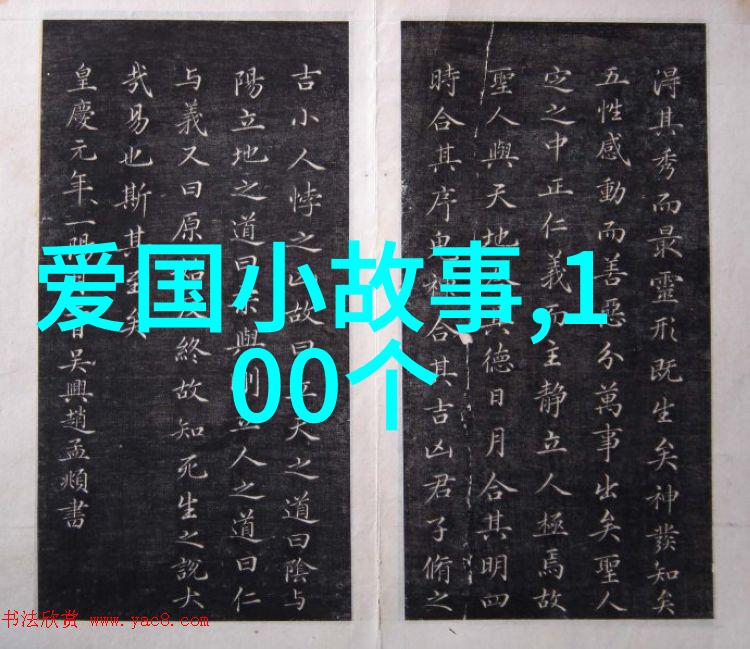 爱国小故事,1
00个
淂其秀而最靈形既生矣神發知矣
五性感動而善惡分萬事出矣聖人
定之中正仁義而主靜立人極焉故
聖人與天地其德日月合其明四
時合其序鬼合其吉凶君子脩之
吉小人悖之凶故曰天之道曰陰与
陽立地之道曰與立人之道曰仁
与義又曰原終故知死生之說大
哉易也斯其至矣
皇慶元年一陽吴興趙孟頫書
书法欣赏 www.yac8.com